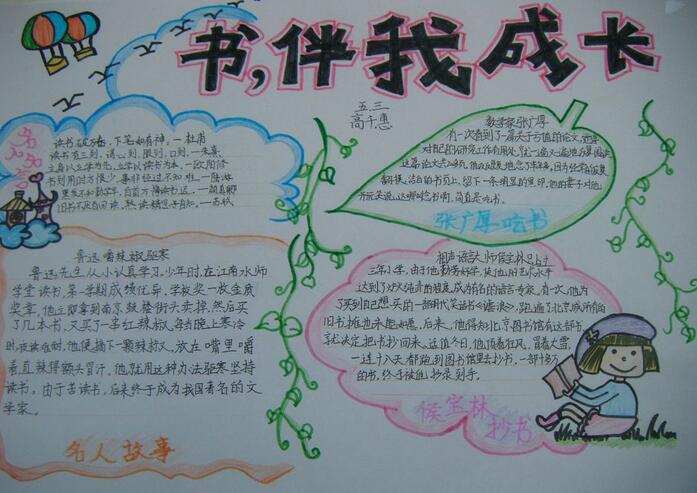 书,伴我成长
五.三
高千惠
名言
读书破万卷,下笔如有神。—杜甫
读书有三到,谓心到,眼到,口到。—朱熹
立身以立学为先,立学以读书为本。—欧阳修
书到用时方恨少,事非经过不知难。—陆游
黑发不知勤学早,白首方悔读书迟。—颜真卿
旧书不厌百回读,熟读精思子自知。—苏轼
数学家张广厚
有一次看到了一篇关于方值的论文,觉得
对自己的研究工作有用处,就一遍又一遍地反复阅读。
开玩笑说,这哪叫念书啊,简直是吃书。
张广厚吃书
鲁迅嚼辣椒驱寒
鲁迅先生从小认真学习。少年时,在江南水师
学堂读书,第一学期成绩优异,学校奖一枚金质
奖章,他立即拿到南京鼓楼街头卖掉,然后买
了几本书,又买了一串红辣椒。每当晚上寒冷
时,夜读难耐,他便摘下一颗辣椒,放在嘴里嚼
着,直辣得额头冒汗。他就用这种办法驱寒坚持
读书。由于苦读书,后来终于成为我国著名的文
学家。
名人故事
相声语言大师侯宝林只上过
三年小学,由于他勤奋好学,使他的艺术水平
达到了炉火纯青的程度,成为有名的语言专家。有一次,他为
了买到自己想买的一部明代笑话书《谑浪》,跑遍了北京城所有的
旧书摊也未能如愿。后来,他得知北京图书馆有这部书,
就决定把书抄回来。适值冬日,他顶着狂风,冒着大雪,
一连十八天都跑到图书馆里去抄书,一部十多万
的书,终于被他抄录到手。
侯宝林
抄书